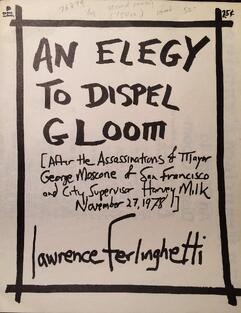 25¢
AN ELEGY
TO DISPEL
GLOOM
[After the Assassinations of Mayor
George Moscone of San Francisco
and City Supervisor Harvey Milk
November 27, 1978]
lawrence ferlinghetti